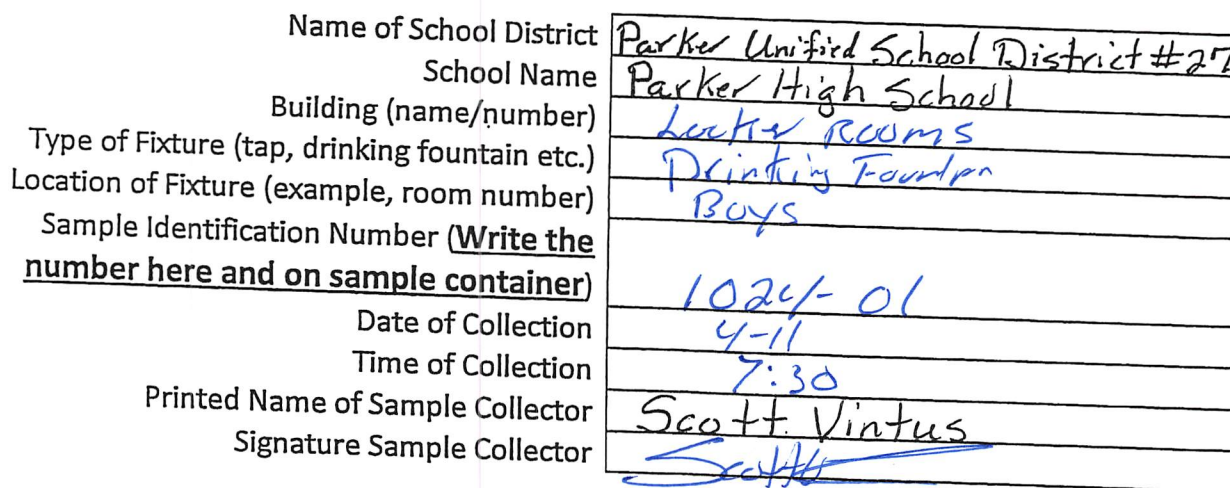 Name of School District Parker Unified School District #27
School Name Parker High School
Building (name/number) Locker Rooms
Type of Fixture (tap, drinking fountain etc.) Drinking
Location of Fixture (example, room number) Boys
Sample Identification Number (Write the
number here and on sample container) 1024-01
Date of Collection 4-11
Time of Collection 7:30
Printed Name of Sample Collector Scott Vintus
Signature Sample Collector Scott